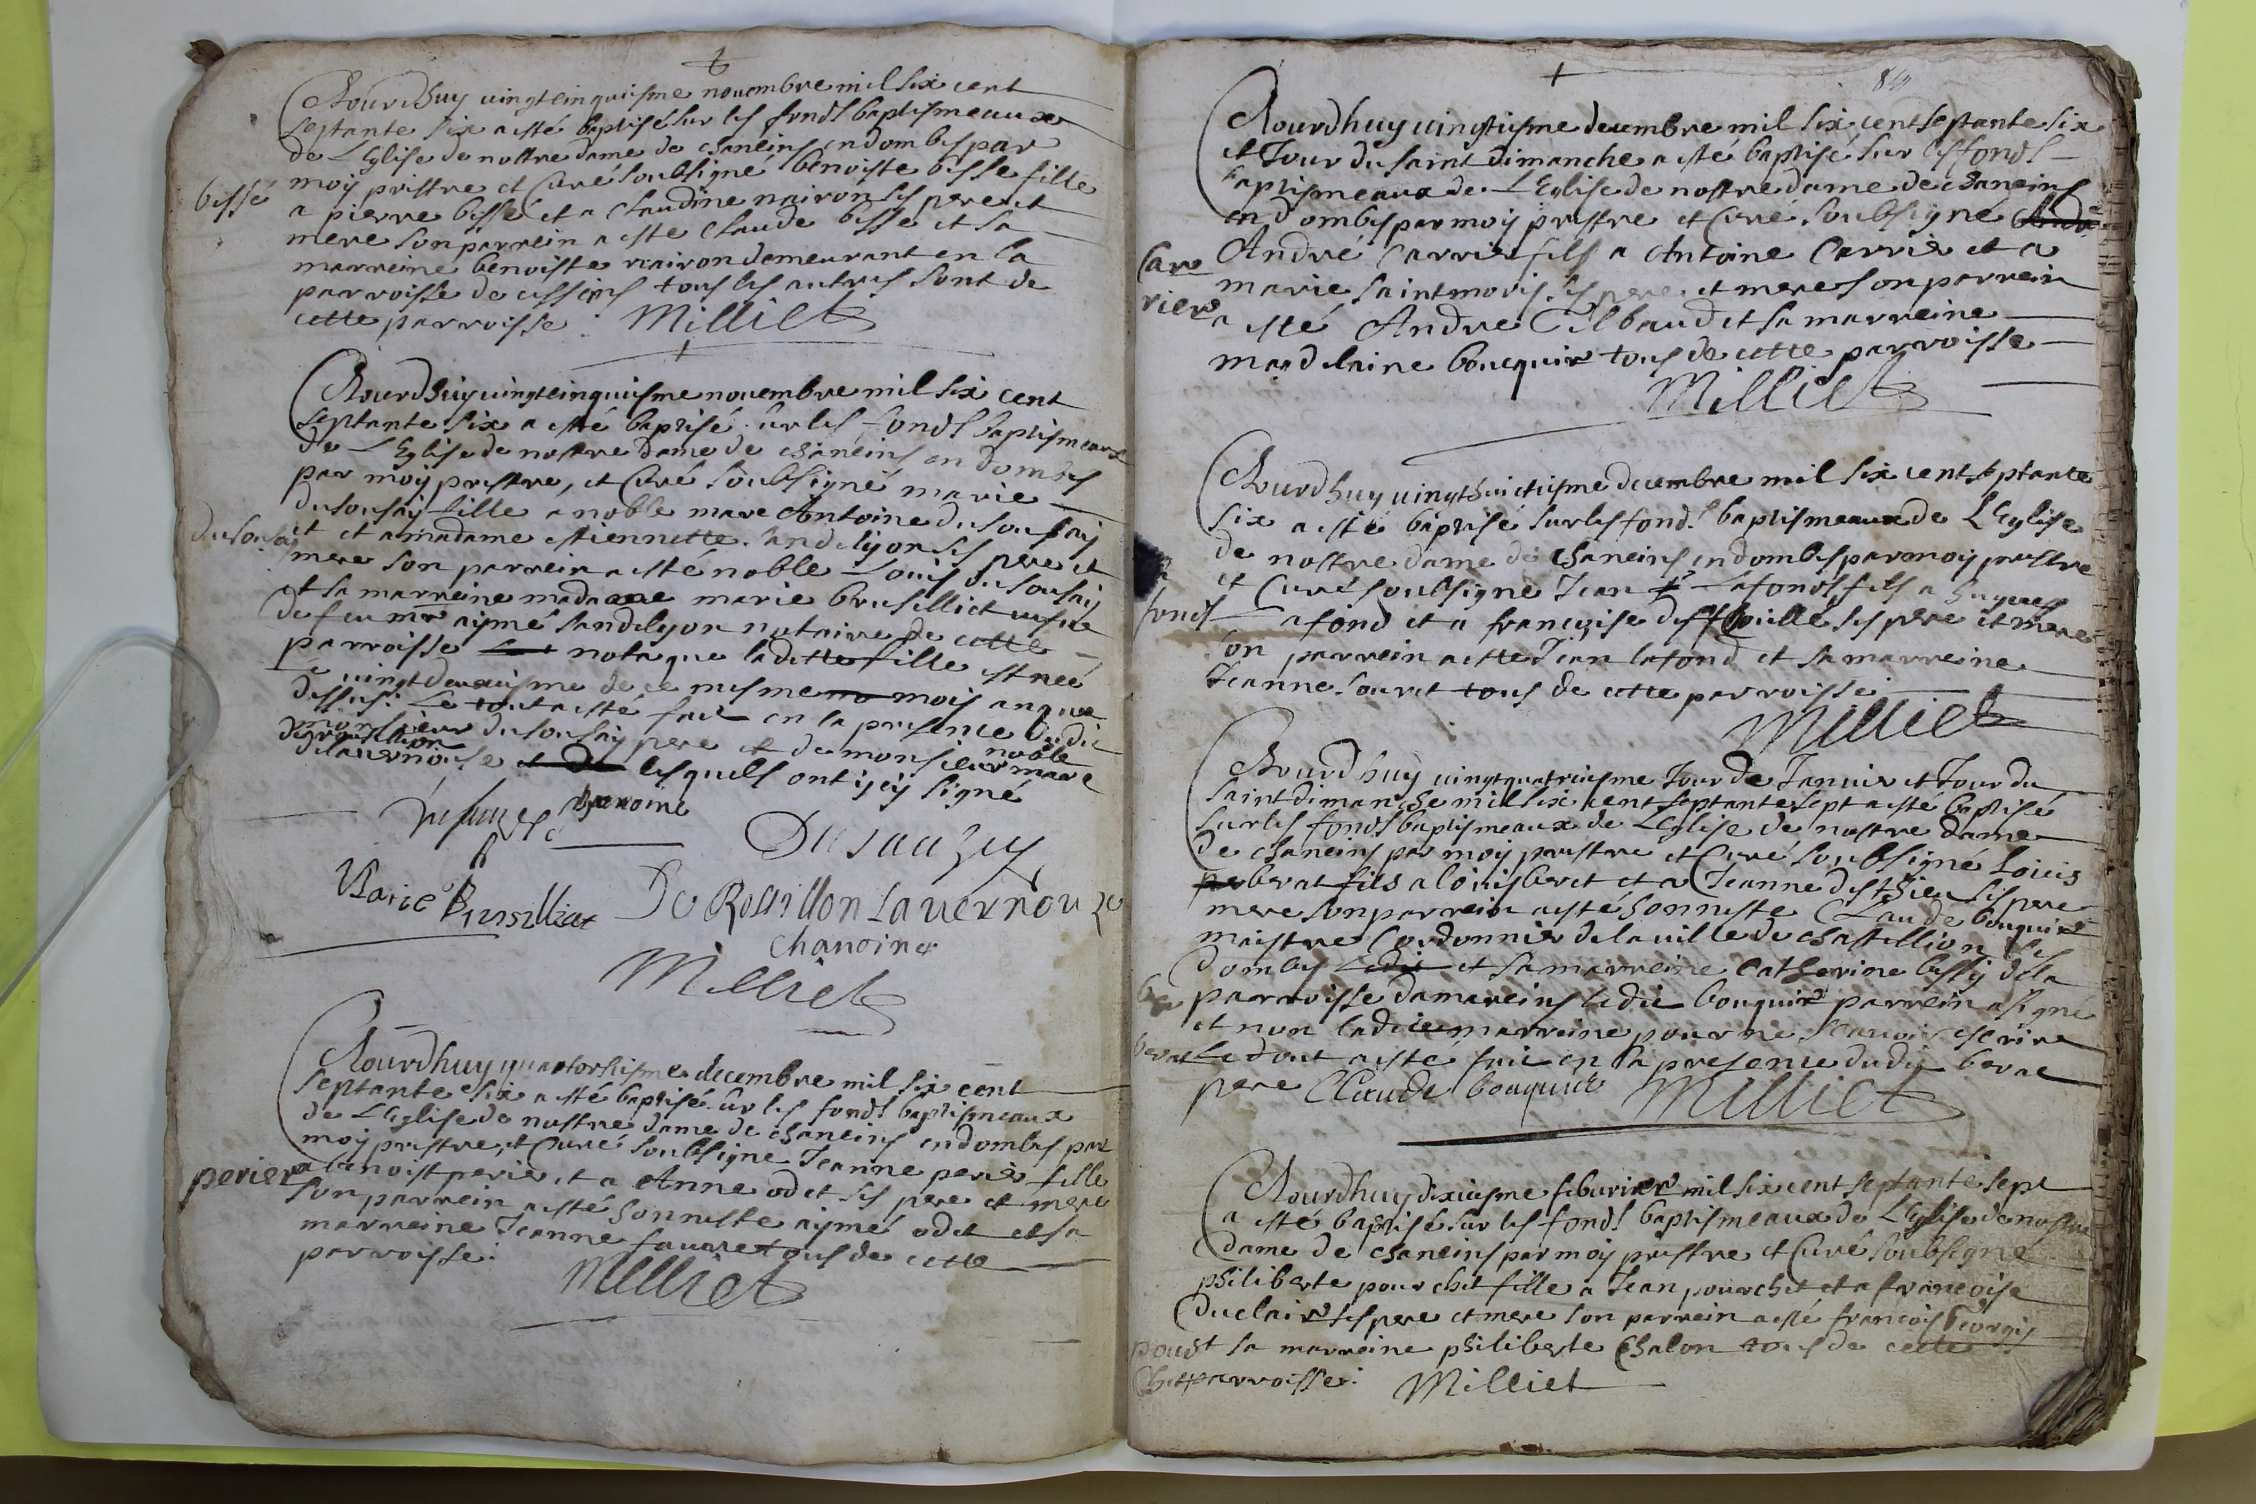 Aourdhuy uingtcinquiesme nouembre mil six cent
septante six a esté baptisé sur les fonds baptismeaux
de L'Eglise de nostre dame de chaneins en dombes par
moy prestre et Curé soubsigné benoiste bissé fille
bissé
a pierre bissé et a Claudine nairon ses pere et
mere son parrein a esté Claude bissé et sa
marreine benoiste nairon demeurant en la
parroisse de cesseins tous les autres sont de
cette parroisse. Milliet
Aourdhuy uingtcinquiesme nouembre mil six cent
septante six a esté baptisé sur les fonds baptismeaux
de L'Eglise de nostre dame de chaneins en dombes
par moy prestre, et Curé soubsigné marie
dusousay fille a noble marc Antoine dusousay
dusousay
et a madame estiennette sandelyon ses pere et
mere son parrein a esté noble Louis dusousay
et sa marreine madame marie brusilliet uefue
de feu mre aymé sandelyon notaire de cette
parroisse nota que la ditte fille est née
le uingtdeuxiesme de ce mesme mois an que
dessus. Le tout a esté fait en la presence dudit
monsieur dusousay pere et de monsieur noble marc
de rousillion
de lauernouse lesquels ont icy signé
Dusauzey
Marie Brusilliet De Rousillon Lauernouze
chanoine
Milliet
Aourdhuy quatorsiesme decembre mil six cent
septante six a esté baptisé sur les fonds baptismeaux
de L'Eglise de nostre dame de chaneins en dombes par
moy prestre, et Curé soubsigné Jeanne perier fille
perier
a benoist perier et a Anne odet ses pere et mere
son parrein a esté honneste aymé odet et sa
marreine Jeanne sauuret tous de cette
parroisse.
Milliet
Aourdhuy uingtiesme decembre mil six cent septante six
et Jour du saint dimanche a esté baptisé sur les fonds
baptismeaux de L'Eglise de nostre dame de chaneins
en dombes par moy prestre et Curé soubsigné
Car
rier
André Carrier fils a Antoine Carrier et a
marie saintmoris ses pere et mere son parrein
a esté André Tilbaud et sa marreine
madelaine bouquin tous de cette parroisse
Milliet
Aourdhuy uingthuictiesme decembre mil six cent septante
six a esté baptisé sur les fonds baptismeaux de L'Eglise
de nostre dame de chaneins en dombes par moy prestre
et Curé soubsigné Jean Lafonds fils a hugues
fonds
Lafond et a francoise desfeuille ses pere et mere
son parrein a esté Jean lafond et sa marreine
Jeanne souret tous de cette parroisse.
Milliet
Aourdhuy uingtquatriesme Jour de Januier et Jour du
saint dimanche mil six cent septante sept a esté baptisé
sur les fonds baptismeaux de L'Eglise de nostre dame
de chaneins par moy prestre et Curé soubsigné Loüis
berat fils a loüis berat et a Jeanne desthieu ses pere
mere son parrein a esté honneste Claude bouquin
maistre Cordonnier de la uille de chastillion les
dombes et sa marreine Catherine bessy de la
parroisse damareins ledit bouquin parrein a signé
et non ladite marreine pour ne scauoir escrire
berat
Le tout a esté fait en la presence dudit berat
pere Claude bouquin Milliet
Aourdhuy dixiesme feburier mil six cent septante sept
a esté baptisé sur les fonds baptismeaux de L'Eglise de nostre
dame de chaneins par moy prestre et Curé soubsigné
philiberte pourchet fille a Jean pourchet et a francoise
duclair ses pere et mere son parrein a esté francois Georges
pour
chet
et sa marreine philiberte Chalon tous de cette
parroisse. Milliet